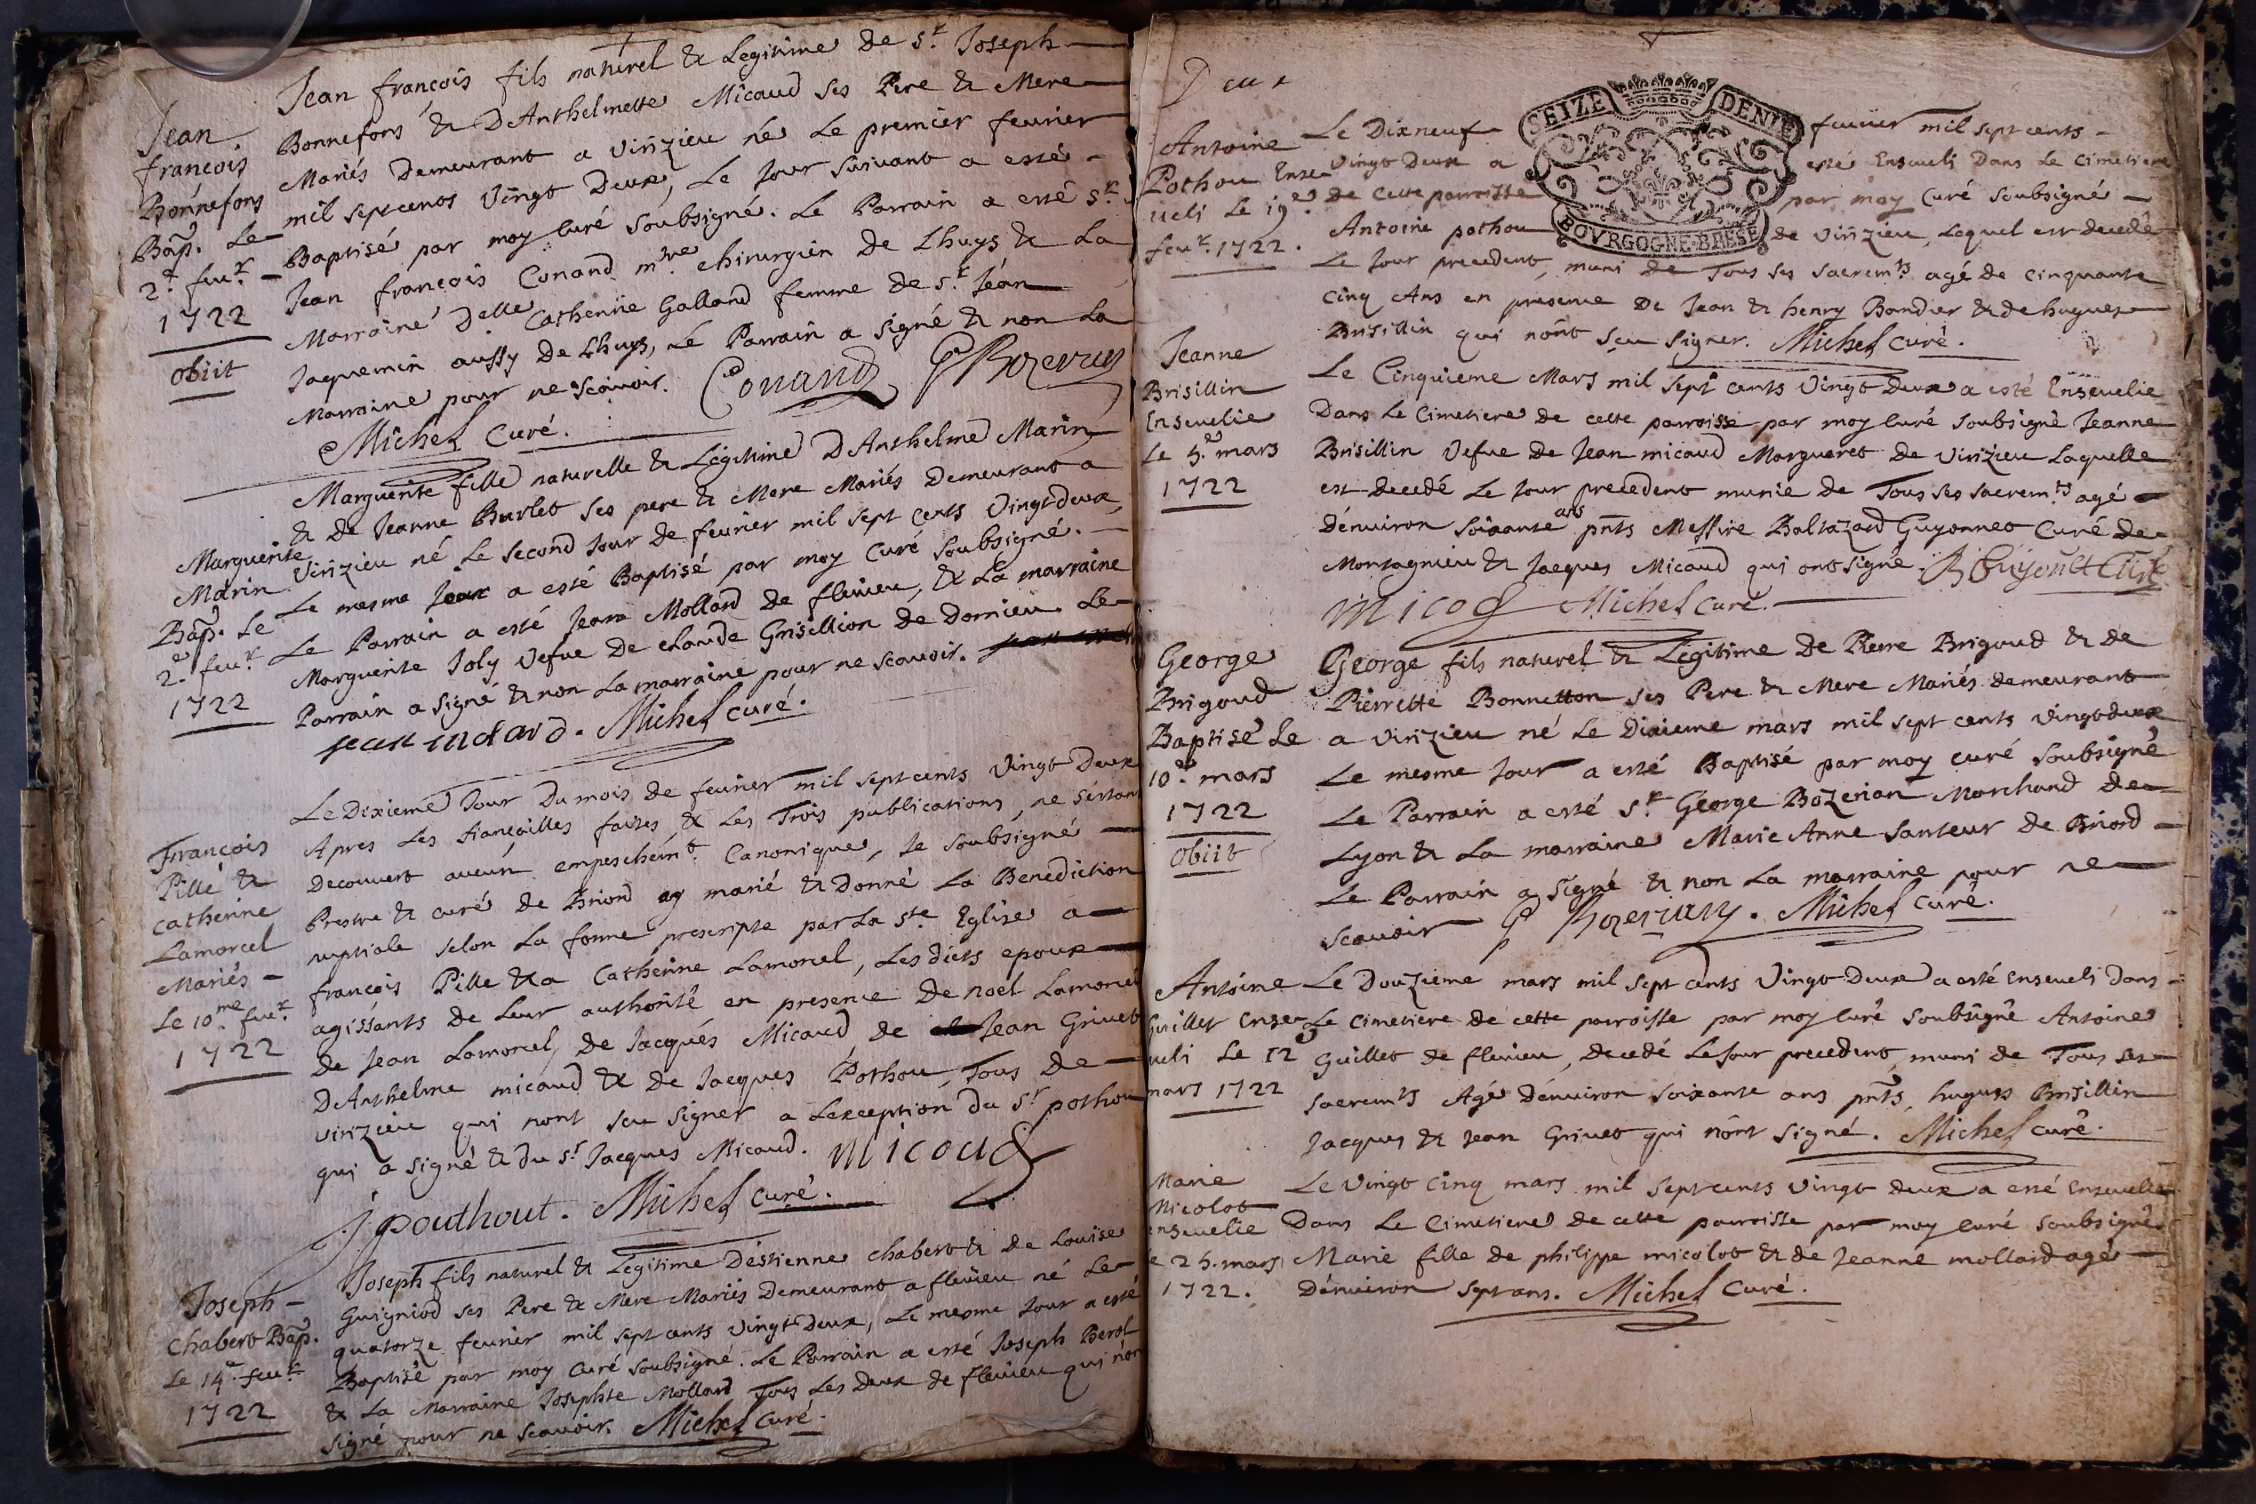 Jean
francois
Bonnefons
Bap. Le
2e. feur.
1722
obiit
Jean francois fils naturel & Legitime de sr. Joseph
Bonnefons & D'Anthelmette Micaud ses Pere & Mere
Mariés Demeurant a virizieu né Le premier feurier
mil septcents Vingt Deux, Le Jour suivant a esté
Baptisé par moy Curé Soubsigné. Le Parrain a esté sr.
Jean françois Conand mtre chirurgien de Lhuys & La
Marraine Delle Catherine Galland femme de sr. Jean
Jaquemin aussy de Lhuys, Le Parrain a signé & non La
Marraine pour ne scavoir. Conand G Bozerian
Michel curé.
Marguerite
Marin
Bap. Le
2e. feur.
1722
Marguerite fille naturelle & Legitime D'Anthelme Marin
& de Jeanne Burlet ses pere & Mere Mariés Demeurant a
Virizieu né Le second Jour de feurier mil sept cents Vingt deux,
Le mesme Jour a esté Baptisé par moy Curé Soubsigné.
Le Parrain a esté Jean Mollard de flevieu, & La marraine
Marguerite Joly Vefue de claude Grisillion de Dornieu. Le
Parrain a signé & non La marraine pour ne scavoir.
Michel curé.
François
Pille &
catherine
Lamorcel
Mariés
Le 10me. feur.
1722
Le Dixieme Jour Du mois de feurier mil septcents Vingt Deux
Apres Les fiançailles faites, & Les Trois publications, ne s'estant
Decouvert aucun empeschemt. Canonique, Je soubsigné
Prestre & curé de Briord ay marié & Donné La Benediction
nuptiale selon La forme prescripte par La ste Eglise a
françois Pille & a Catherine Lamorcel, Les dicts epoux
agissants de Leur authorité en presence de noel Lamorcel
de Jean Lamorcel, de Jacques Micaud, de Jean Grivet
D'Anthelme micaud & de Jacques Pothou, Tous De
virizieu qui nont sceu signer a Lexception du sr pothou
qui a signé & du sr Jacques Micaud. micoud
J pouthout. Michel curé.
Joseph
Chabert Bap.
Le 14e. feur.
1722
Joseph fils naturel & Legitime D'estienne chabert & de Louise
Guigniod ses Pere & Mere Mariés Demeurant a flevieu né Le
quatorze feurier mil sept cents vingt Deux, Le mesme Jour a esté
Baptisé par moy Curé soubsigné. Le Parrain a esté Joseph Berot
& La Marraine Josephte Mollard Tous Les Deux de flevieu qui n'ont
signé pour ne scavoir. Michel curé.
Deux
SEIZE DENIE
BOVRGOGNE·BRESE
Antoine
Pothou Ense
ueli Le 19e.
feur. 1722.
Le Dixneuf feurier mil septcents
Vingt Deux a esté Enseueli Dans Le Cimetiere
de Cette parroisse par moy Curé Soubsigné
Antoine pothou de virizieu, Lequel est decedé
Le Jour precedent, muni de Tous ses sacremts. agé de cinquante
Cinq Ans en presence De Jean & henry Bondier & de hugues
Brisillin qui n'ont sceu signer. Michel curé.
Jeanne
Brisillin
Enseuelie
Le 5.e mars
1722
Le Cinquieme Mars mil sept cents Vingt Deux a esté Enseuelie
Dans Le Cimetiere de cette parroisse par moy Curé Soubsigné Jeanne
Brisillin Vefue de Jean micaud Margueret de virizieu Laquelle
est decedé Le Jour precedent munie de Tous ses sacremts agé
D'enuiron soixante ans pnts Messire Baltazard Guyonnet Curé de
Montagnieu & Jacques Micaud qui ont signé.
Michel curé.
George
Brigoud
Baptisé Le
10e mars
1722
obiit
George fils naturel & Legitime De Pierre Brigoud & de
Pierrette Bonnetton ses Pere & Mere Mariés demeurant
a virizieu né Le Dixieme mars mil sept cents vingt deux
Le mesme Jour a esté Baptisé par moy curé Soubsigné
Le Parrain a esté sr. George Bozerian Marchand de
Lyon & La marraine Marie Anne Santeur de Briord
Le Parrain a signé & non La marraine pour ne
scavoir G Bozerian. Michel curé.
Antoine
Guillet Enseu
ueli Le 12
mars 1722
Le Douzieme mars mil sept cents Vingt Deux a esté Enseueli Dans
Le Cimetiere de cette parroisse par moy Curé Soubsigné Antoine
Guillet de flevieu, decedé Le Jour precedent, muni de Tous ses
sacremts Agé D'enuiron soixante ans pnts, hugues Brisillin
Jacques & Jean Grivet qui n'ont signé. Michel curé.
Marie
Micolot
enseuelie
le 25. mars
1722.
Le Vingt Cinq mars mil septcents vingt deux a esté Enseuelie
Dans Le Cimetiere de cette parroisse par moy curé soubsigné
Marie fille de philippe micolot & de Jeanne mollard agée
D'enuiron sept ans. Michel curé.